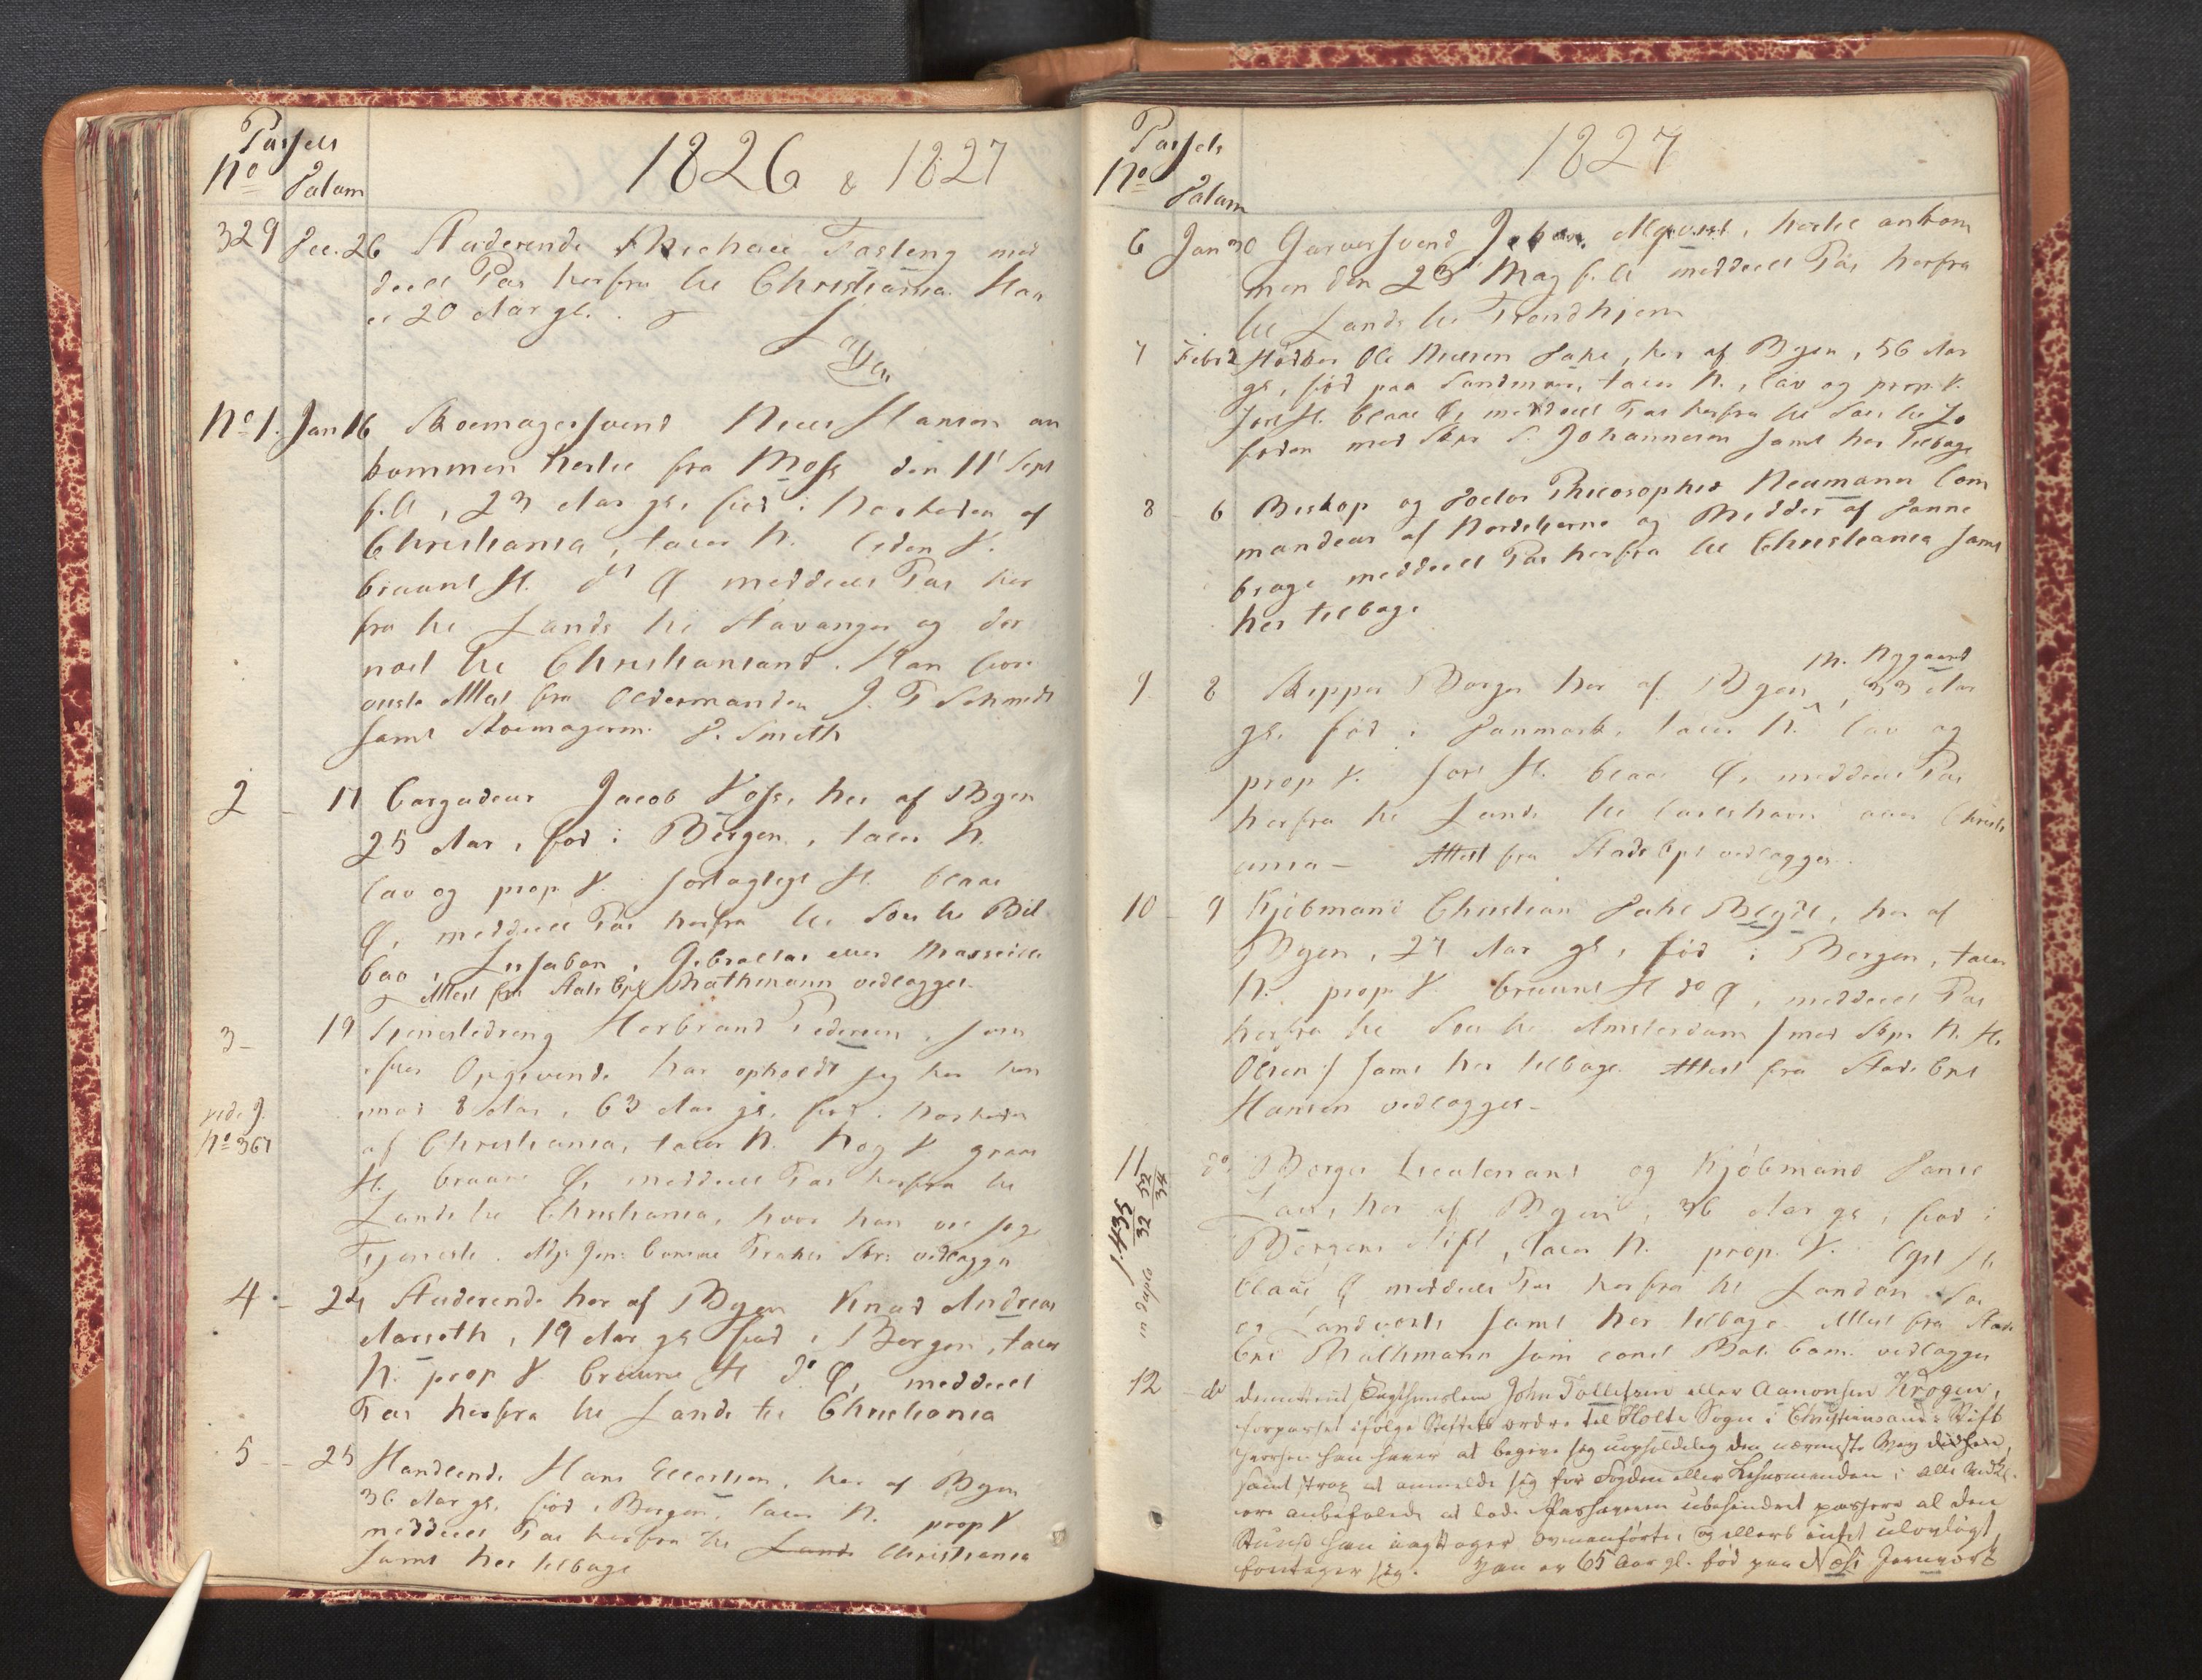 Passets
No Datum
1826 & 1827
329 Dec. 26 Studerende Michael Fasting med
deelt Pas herfra til Christiania. Han
er 20 Aar gl.
No 1. Jan 16 Skoemagersvend Niels Hansen an
kommen hertil fra Moss den 11 Sept
f. A, 23 Aar gl, fød i Nærheden af
Christiania, taler N. liden V.
bruunt H. do Ø meddeelt Pas her
fra til Lands til Stavanger og der
næst til Christiansand. Han fore
viiste Attest fra Oldermanden J. F Schmidt
samt Skoemagerm. D. Smith
2 - 17 Cargadeur Jacob Voss, her af Byen
25 Aar, fød i Bergen, taler N.
lav og prop V. sortagtigt H. blaae
Ø, meddeelt Pas herfra til Søes til Bil
bao, Lissabon, Gibraltar eller Marseille
Attest fra Stads Cpt Rathmann vedlægges.
3 - 19 Tjenestedreng Herbrand Pedersen, som
efter Opgivende har opholdt sig her hen
imod 8 Aar, 63 Aar gl, fød i Nærheden
vide J.
No 367
af Christiania, taler N. høy V graae
H, bruune Ø, meddeelt Pas herfra til
Lands til Christiania, hvor han vil søge
Tjeneste.
4 - 24 Studerende her af Byen Knud Andreas
Aarseth, 19 Aar gl fød i Bergen, taler
N. prop V bruune H do Ø, meddeelt
Pas herfra til Lands til Christiania
5 - 25 Handlende Hans Ellertsen, her af Byen
36 Aar gl, fød i Bergen, taler N. prop V
meddeelt Pas herfra til Lands Christiania
samt her tilbage
Passets
No Datum
1827
6 Jan 30 Garversvend Johan Almqvist, hertil ankom
men den 23 May f. A meddeelt Pas herfra
til Lands til Trondhjem
7 Febr 2 Bødker Ole Nielsen Dahl, her af Byen, 56 Aar
gl, fød paa Søndmør, taler N., lav og prop. V.
sort H. blaae Ø, meddeelt Pas herfra til Søes til Lo
foden med Skpr S. Johannesen samt her tilbage
8 - 6 Biskop og Doctor Philosophiæ Neumann Com
mandeur af Nordstjerne og Ridder af Danne
broge meddeelt Pas herfra til Christiania samt
her tilbage
M. Nygaard
9 8 Skipper Borger her af Byen, 33 Aar
gl, fød i Danmark, taler N. lav og
prop V. sort H. blaae Ø, meddeelt Pas
herfra til Lands til Carlshavn over Christi
ania - Attest fra Stads Cpt vedlægges.
10 - 9 Kjøbmand Christian Dahl Blydt, her af
Byen, 27 Aar gl, fød i Bergen, taler
N. prop V. bruunt H do Ø, meddeelt Pas
herfra til Søes til Amsterdam /: med Skpr N. H.
Olsen :/ samt her tilbage. Attest fra Stads Cpt
Hansen vedlægges -
11 do Borger Lieutenant og Kjøbmand Daniel
her af Byen, 36 Aar gl, fød i
Bergens Stift, taler N. prop. V. lyst H
blaae Ø meddeelt Pas herfra til London Søe
og Landverts samt her tilbage. Attest fra Stads
Cpt Rathmann som const Bat. Com. vedlægges
12 - do demitteret Tugthuuslem John Tollefsen eller Aanonsen Krogen,
forpasset ifølge Stiftets Ordre til Holts Sogn i Christiansands Stift
hvorhen han haver at begive sig uopholdelig den nærmeste Vey didhen,
samt strax at anmelde sig for Fogden eller Lehnsmanden; Alle Vedk.
ere anbefalede at lade Pashaveren ubehindret passere al den
Stund han iagttager ovenanførte, og ellers intet ulovligt
foretager sig. Han er 65 Aar gl. fød paa Næss Jernværk